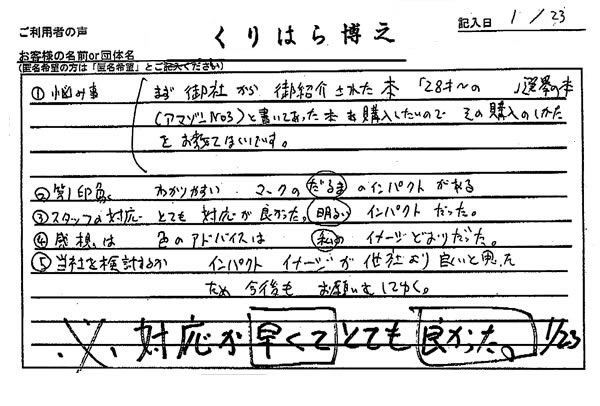 ご利用者の声
記入日 1/23
お客様の名前or団体名
くりはら博之
(匿名希望の方は「匿名希望」とご記入ください)
① 悩み事 まず 御社 から 御紹介 された 本 「28才~の 」選挙の本
(アマゾンNo3)と書いてあった 本 も 購入したいので その購入のしかた
を お教えてほしいです。
② 第1印象 わかりやすい マークの だるま のインパクト がある
③ スタッフの対応 とても 対応が良かった。 明るい インパクト だった。
④ 感想は 色のアドバイスは 私の イメージ どおりだった。
⑤ 当社を検討するか インパクト イメージが 他社より良いと思った
ため 今後も お願い してゆく。
※、対応が 早くて とても 良かった。 1/23